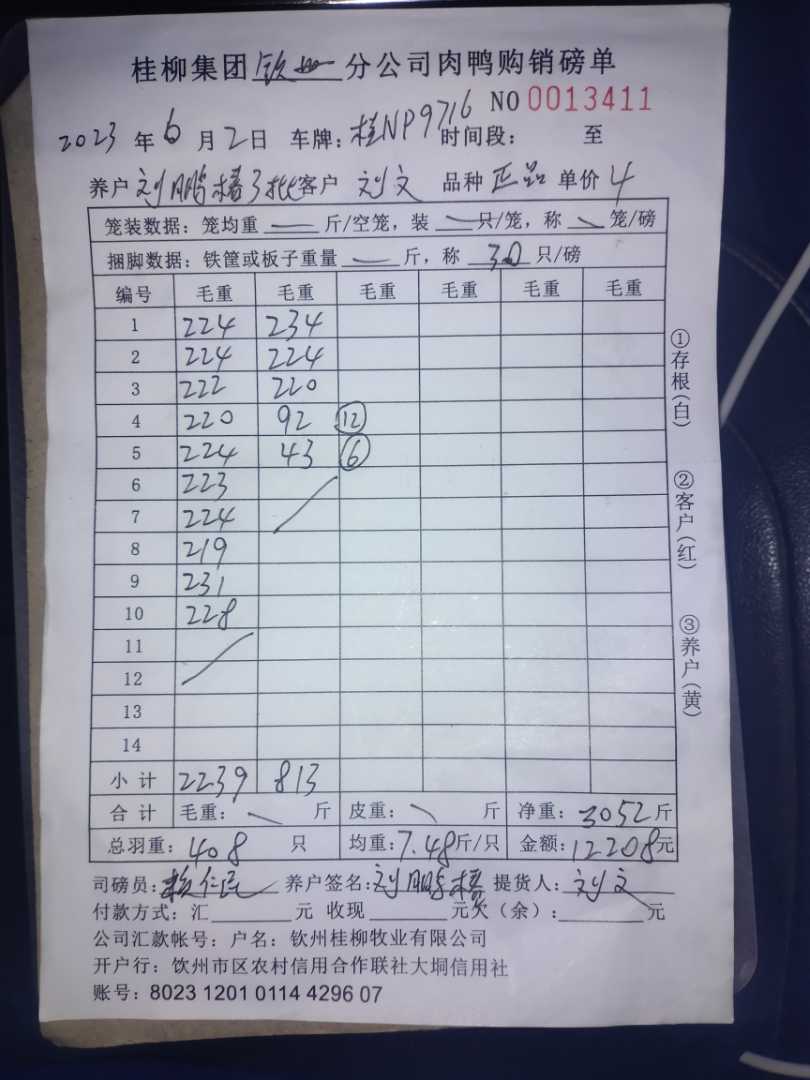 桂柳集团钦州分公司肉鸭购销磅单
NO 0013411
2023年6月2日 车牌：桂NP9716 时间段： 至
养户 刘鹏 3批 客户 刘文 品种 正品 单价 4
笼装数据：笼均重 斤/空笼，装 只/笼，称 笼/磅
捆脚数据：铁筐或板子重量 斤，称 30 只/磅
编号 毛重 毛重 毛重 毛重 毛重 毛重
1 224 234
2 224 224
3 222 220
4 220 92 12
5 224 43 6
6 223
7 224
8 219
9 231
10 228
11
12
13
14
小计 2239 813
合计 毛重： 斤 皮重： 斤 净重：3052斤
总羽重：408 只 均重：7.48斤/只 金额：12208元
司磅员：赖仁民 养户签名：刘鹏 提货人：刘文
付款方式：汇 元 收现 元欠（余）： 元
公司汇款帐号：户名：钦州桂柳牧业有限公司
开户行：钦州市区农村信用合作联社大垌信用社
账号：8023 1201 0114 4296 07
①存根(白)
②客户(红)
③养户(黄)